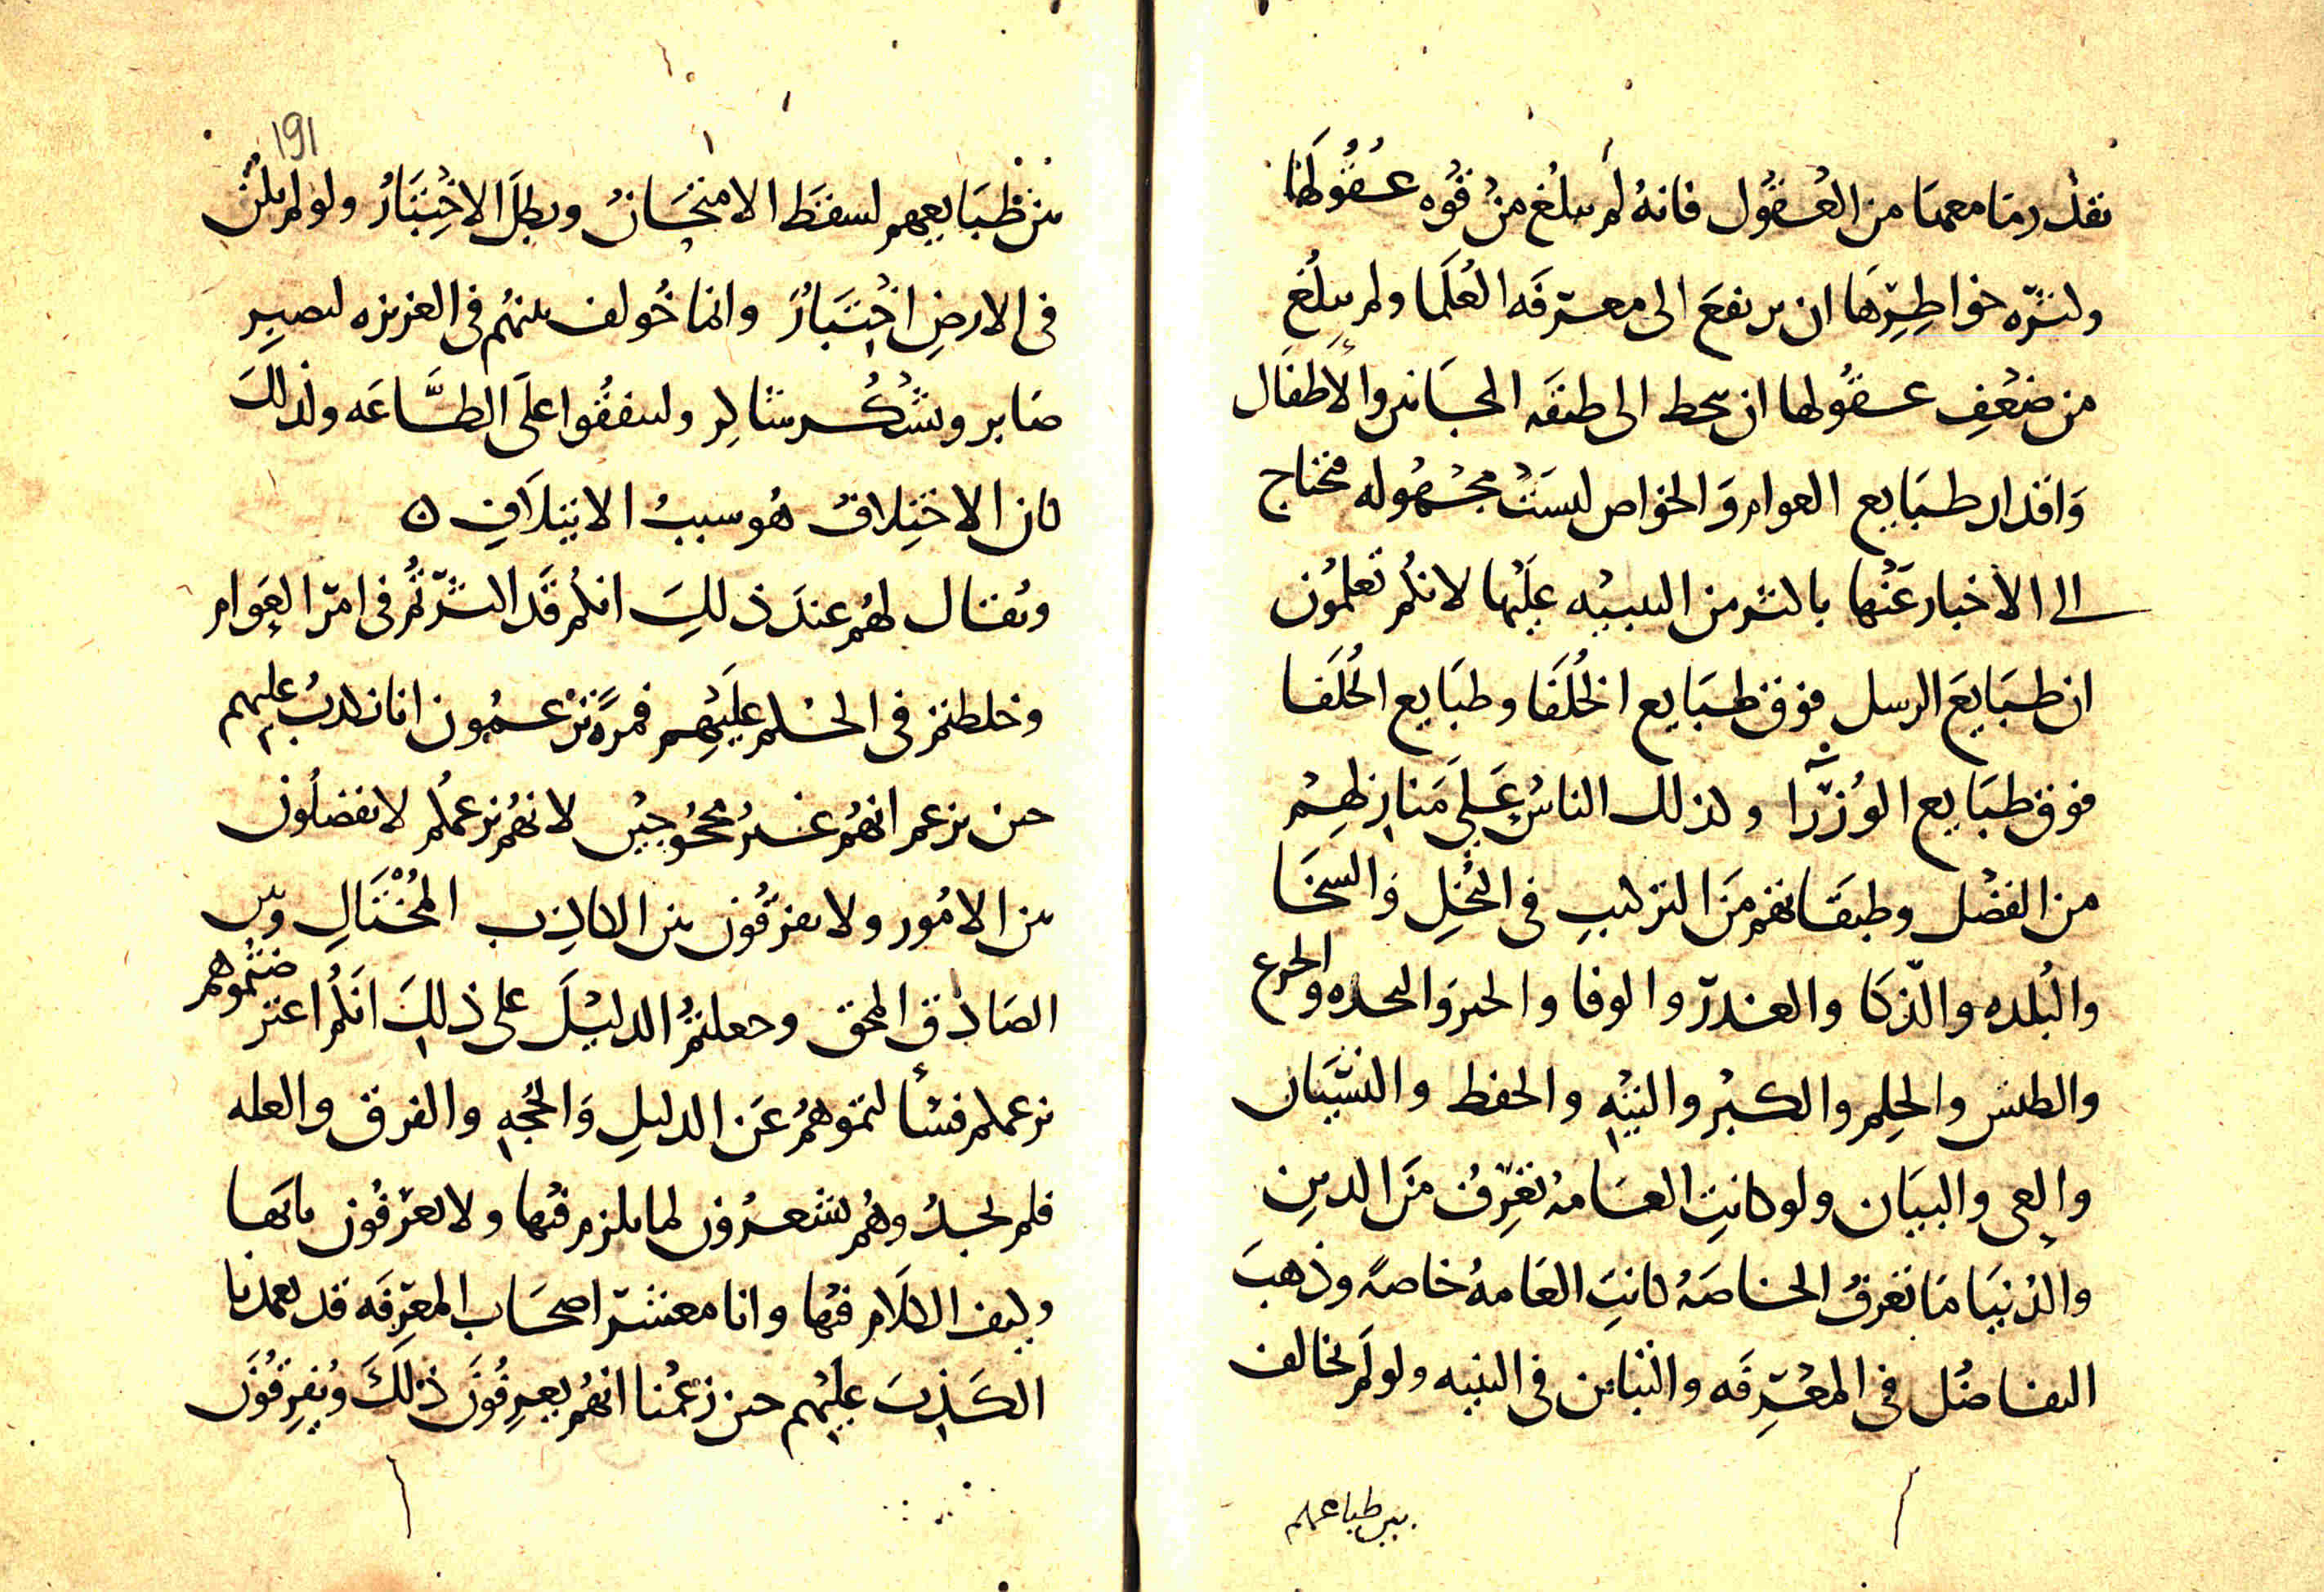 بقدر ما معها من العقول فانه لم يبلغ من قُوه عُقُولها
وكثره خواطِرِها ان يرتفع الى معرفَه العُلَما ولم يبلُغ
من ضَعْفِ عقُولها ان يحط الى طبقَه المجانين والأطفَال
وَاقدار طبَايع العوام وَالخواص ليسَتْ مجهُوله فتحتاج
الى الاخبار عَنْها باكثر من التنبيْه عليْها لانكُم تعلمُون
ان طبَايعَ الرسل فوق طبَايع الخُلَفَا وطبَايع الخُلَفا
فوق طبَايع الوُزَرا وكذلك الناسُ عَلَى مَنازلهِمْ
من الفضْل وطبقَاتهُم مَن التركيبِ في البُخلِ والسخَا
والبُلده والذّكَا والغدر والوفا والجبن والنجده والجزع
والطيش والحِلم والكبْر والتيْهِ والحفظ والنسْيَان
والعى والبيَان ولو كانتِ العامهُ تعْرِفُ مَن الدينِ
والدُنيَا مَا تعْرفُ الخاصَهُ كانتِ العَامهُ خاصهً وذهبَ
التفاضُل في المعْرِفَه والتباين في البنيه ولو لَم يخالف
بين طبايعهم
191
بين طبَايعهم لسقَط الامتحَانُ وبطلَ الاخْتِبَارُ ولو لم يكُن
في الارضِ اخْتِبَارٌ وانما خُولف بينهُم في الغريزه ليصبِر
صَابر ويشْكُر شاكِر وليتفقُوا علَى الطَّاعَه ولذلكَ
كان الاختِلافُ هُو سببُ الايتِلاَفِ ه
ويُقال لهُم عندَ ذلكَ انكُم قَد اكثَرْتُم في امْر العَوام
وخلطتم في الحُكم عَليْهِم فمرةً تزْعمُون انا نكذبُ عليهم
حين نزعم انهُم غيرُ محْجُوجيْن لانهُم بزعمكُم لا يفصلُون
بين الامُور ولا يفرّقُون بين الكاذِب المُحْتَالِ وبين
الصَادق المحق وجعلتمُ الدليْلَ على ذلِكَ انكُم اعترضتُموهم
بزعمكم فسألتموهُمْ عَن الدليلِ وَالحُجهِ والفرق والعله
فلم تجدُوهُم يشعُرُون لما يلزم فيْها ولا يعْرفُون بابَها
وكيف الكلَام فيْها وانا معشَر اصحَاب المعْرِفَه قد تعمدنا
الكَذِبَ عليْهم حين زعَمْنا انهُم يعرِفُونَ ذلكَ ويُفرِقُونَ